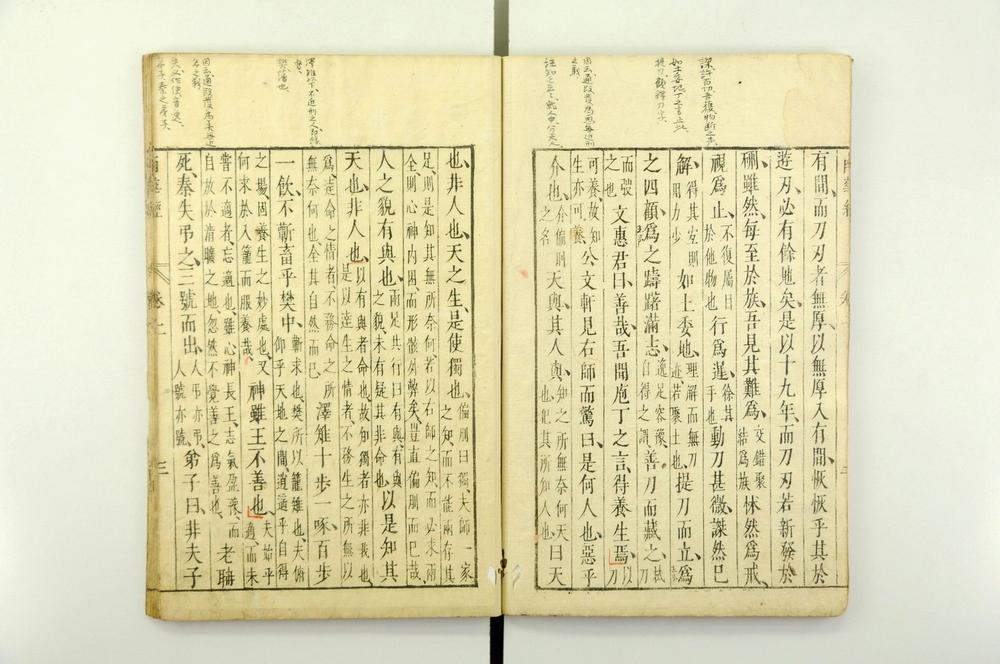 有間、而刀刃者無厚、以無厚入有間、恢恢乎其於
遊刃、必有餘地矣、是以十九年、而刀刃若新發於
硎、雖然、每至於族、吾見其難爲、交錯聚結爲族怵然爲戒、
視爲止、不復屬目於他物也行爲遲、徐其手也動刀甚微、謋然已
解、得其宜則用力少如土委地、理解而無刀迹、若聚土也提刀而立、爲
之四顧、爲之躊躇滿志、逸足容豫、自得之謂善刀而藏之、拭刀
而弢之也文惠君曰、善哉、吾聞庖丁之言、得養生焉、以刀
可養、故知生亦可養公文軒見右師而驚曰、是何人也、惡乎
介也、介偏刖之名天與、其人與、知之所無奈何天也、犯其所知人也曰天
也、非人也、天之生、是使獨也、偏刖曰獨、夫師一家之知、而不能兩存其
足、則是知其無所奈何、若以右師之知、而必求兩全則心神內困、而形骸外弊矣、豈直偏刖而已哉
人之貌有與也、兩足共行曰有與、有與之貌、未有疑其非命也以是知其
天也、非人也、以有與者命也、故知獨者亦非我也、是以達生之情者、不務生之所無以
爲、達命之情者、不務命之所無奈何也、全其自然而已澤雉十步一啄、百步
一飲、不蘄畜乎樊中、蘄求也、樊所以籠雉也、夫俯仰乎天地之間、逍遙乎自得
之場、固養生之妙處也、又何求於入籠而服養哉神雖王不善也、夫始乎適、而未
嘗不適者、忘適也、雖心神長王、志氣盈豫、而自放於清曠之地、忽然不覺善之爲善也老聃
死、秦失弔之、三號而出、人弔亦弔、人號亦號弟子曰、非夫子
南華經 卷上 三